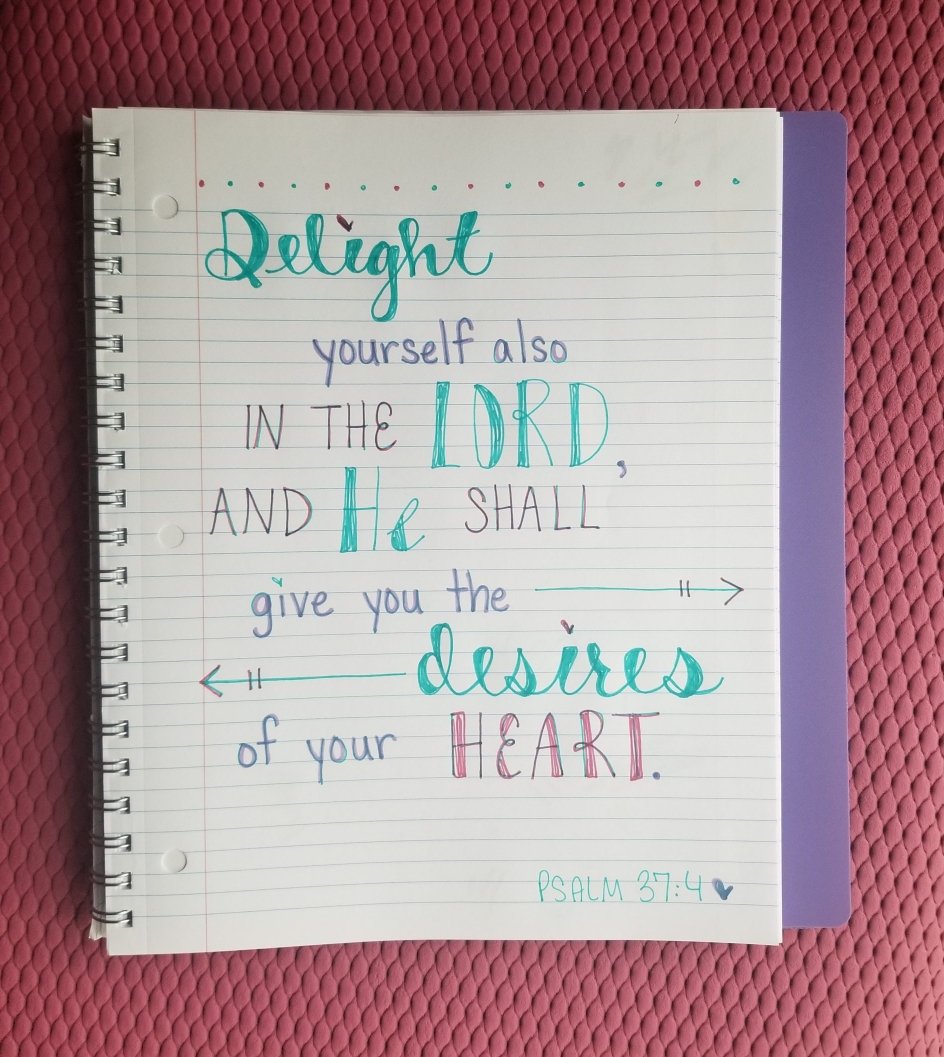 Delight
yourself also
IN THE LORD,
AND He SHALL
give you the
desires
of your HEART.
PSALM 37:4